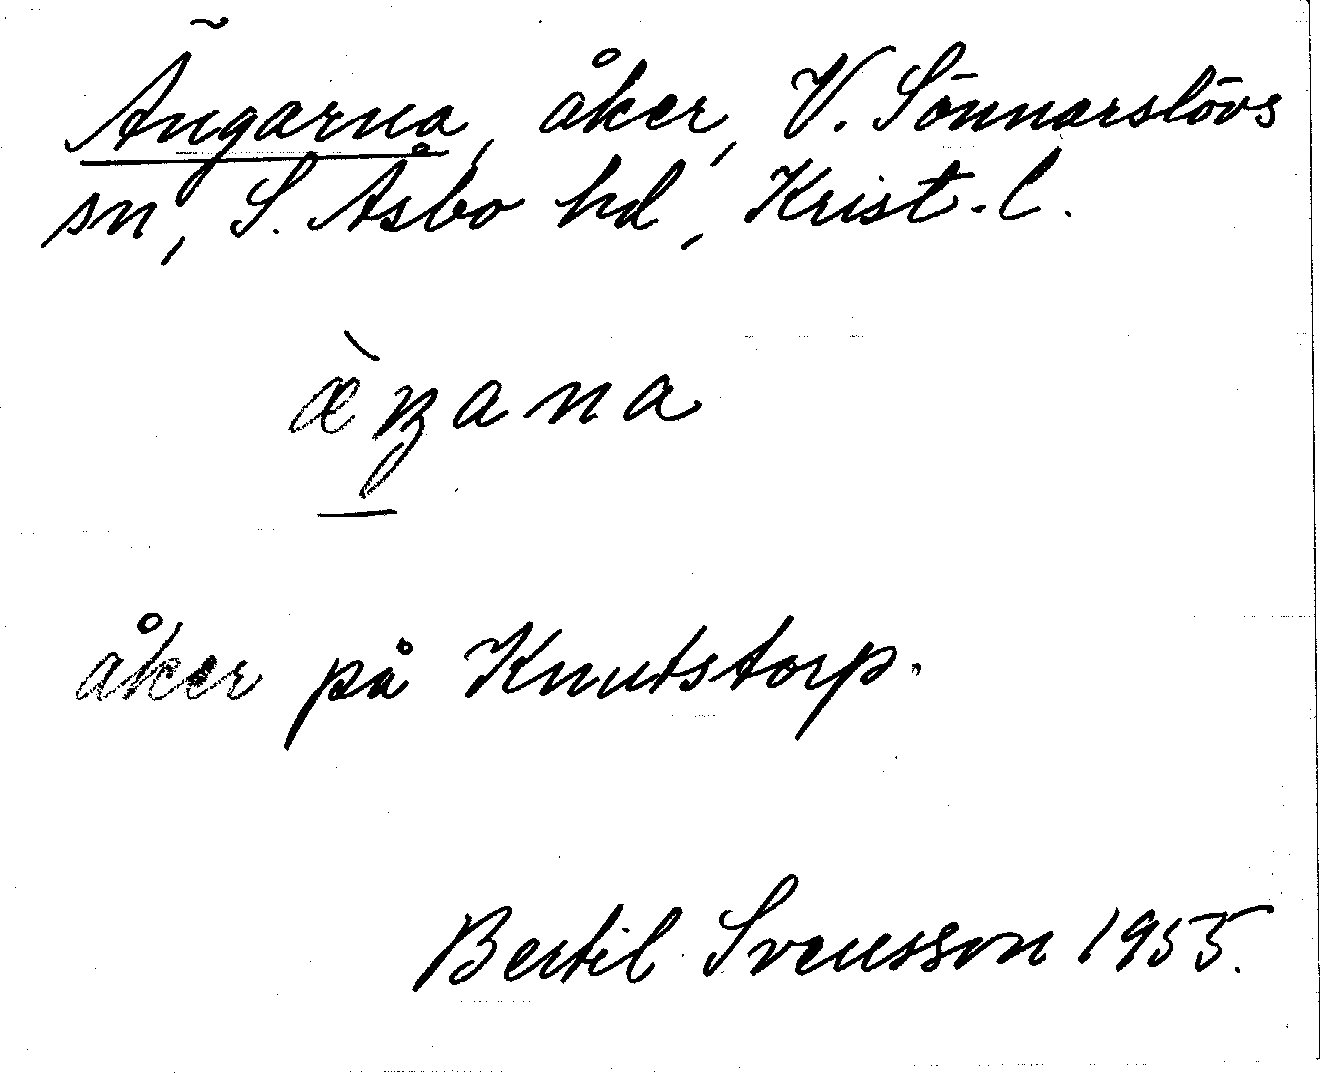 Ängarna, åker, V. Sönnarslövs
sn, S. Åsbo hd, Krist. l.
æ̀ŋana
åker på Knutstorp.
Bertil Svensson 1955.